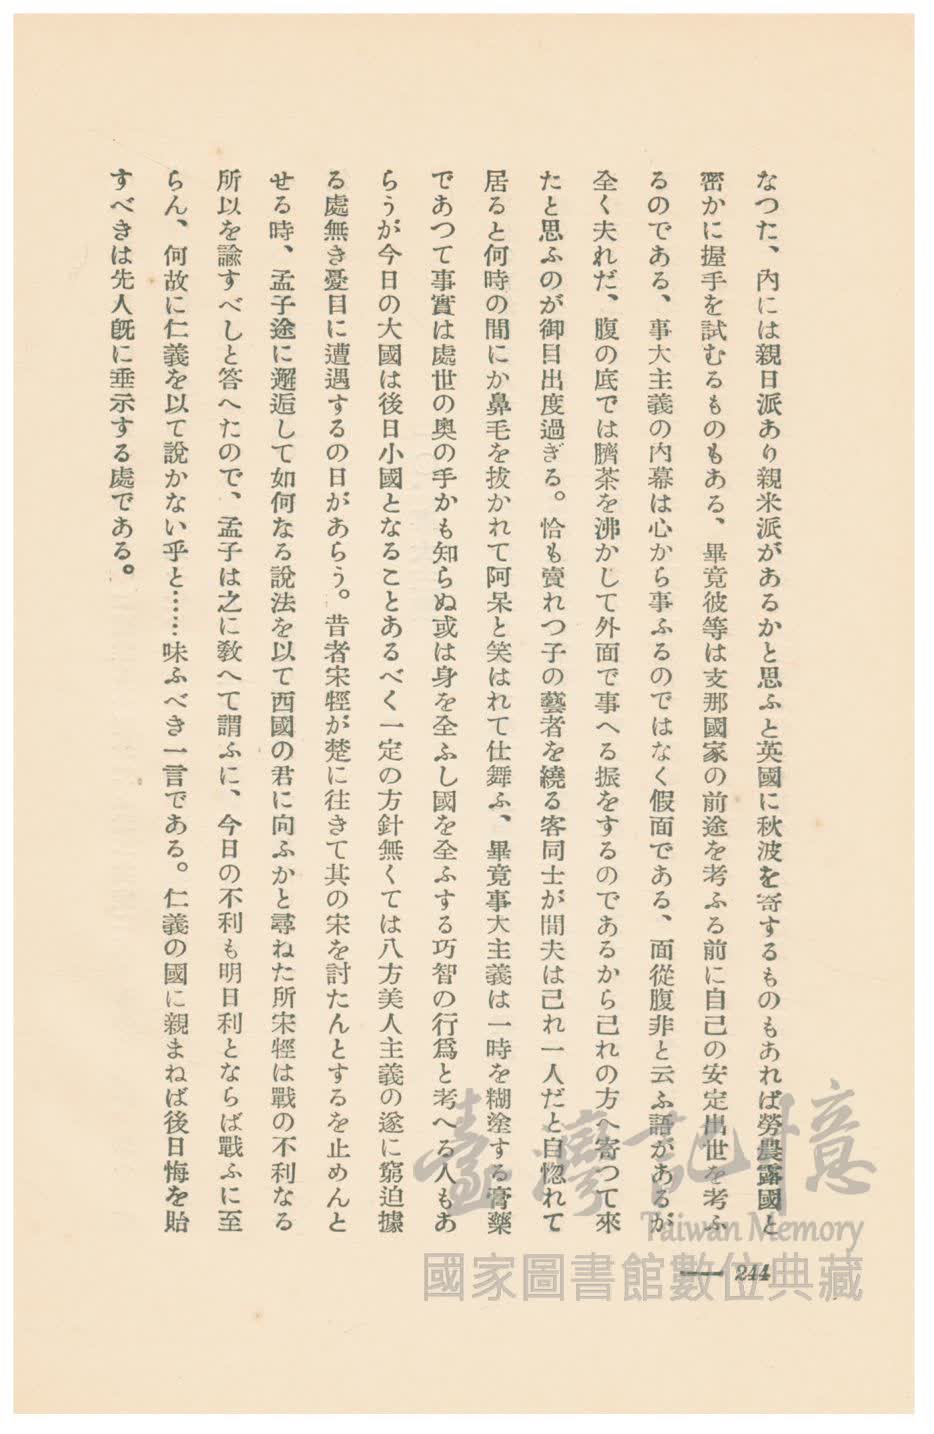 なつた、內には親日派あり親米派があるかと思ふと英國に秋波を寄するものもあれば勞農露國と
密かに握手を試むるものもある、畢竟彼等は支那國家の前途を考ふる前に自己の安定出世を考ふ
るのである、事大主義の內幕は心から事ふるのではなく假面である、面從腹非と云ふ語があるが
全く夫れだ、腹の底では臍茶を沸かして外面で事へる振をするのであるから己れの方へ寄つて來
たと思ふのが御目出度過ぎる。恰も賣れつ子の藝者を繞る客同士が間夫は己れ一人だと自惚れて
居ると何時の間にか鼻毛を拔かれて阿呆と笑はれて仕舞ふ、畢竟事大主義は一時を糊塗する膏藥
であつて事實は處世の奧の手かも知らぬ或は身を全ふし國を全ふする巧智の行爲と考へる人もあ
らうが今日の大國は後日小國となることあるべく一定の方針無くては八方美人主義の遂に窮迫據
る處無き憂目に遭遇するの日があらう。昔者宋牼が楚に往きて其の宋を討たんとするを止めんと
せる時、孟子途に邂逅して如何なる說法を以て西國の君に向ふかと尋ねた所宋牼は戰の不利なる
所以を諭すべしと答へたので、孟子は之に敎へて謂ふに、今日の不利も明日利とならば戰ふに至
らん、何故に仁義を以て說かない乎と……味ふべき一言である。仁義の國に親まねば後日悔を貽
すべきは先人既に垂示する處である。
臺灣記憶
Taiwan Memory
國家圖書館數位典藏
— 244